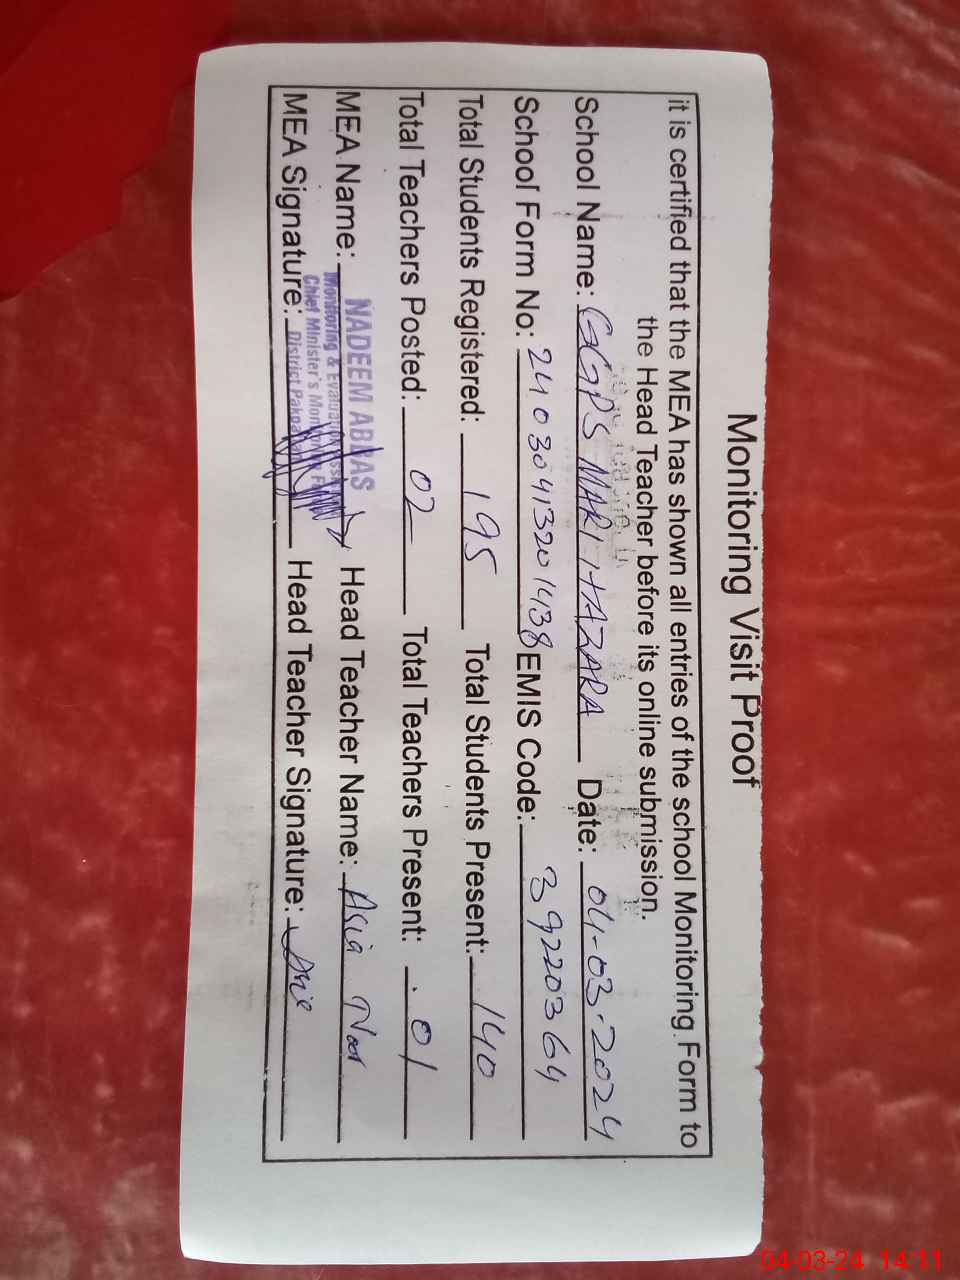 Monitoring Visit Proof
it is certified that the MEA has shown all entries of the school Monitoring Form to
the Head Teacher before its online submission.
School Name: GGPS MARI HAZARA Date: 04-03-2024
School Form No: 24030413201438 EMIS Code: 39220364
Total Students Registered: 195 Total Students Present: 140
Total Teachers Posted: 02 Total Teachers Present: 01
MEA Name: NADEEM ABBAS Head Teacher Name: Asia Noor
Monitoring & Evaluation
Chief Minister's Monitoring
MEA Signature: District Pakpattan Head Teacher Signature:
04-03-24 14:11